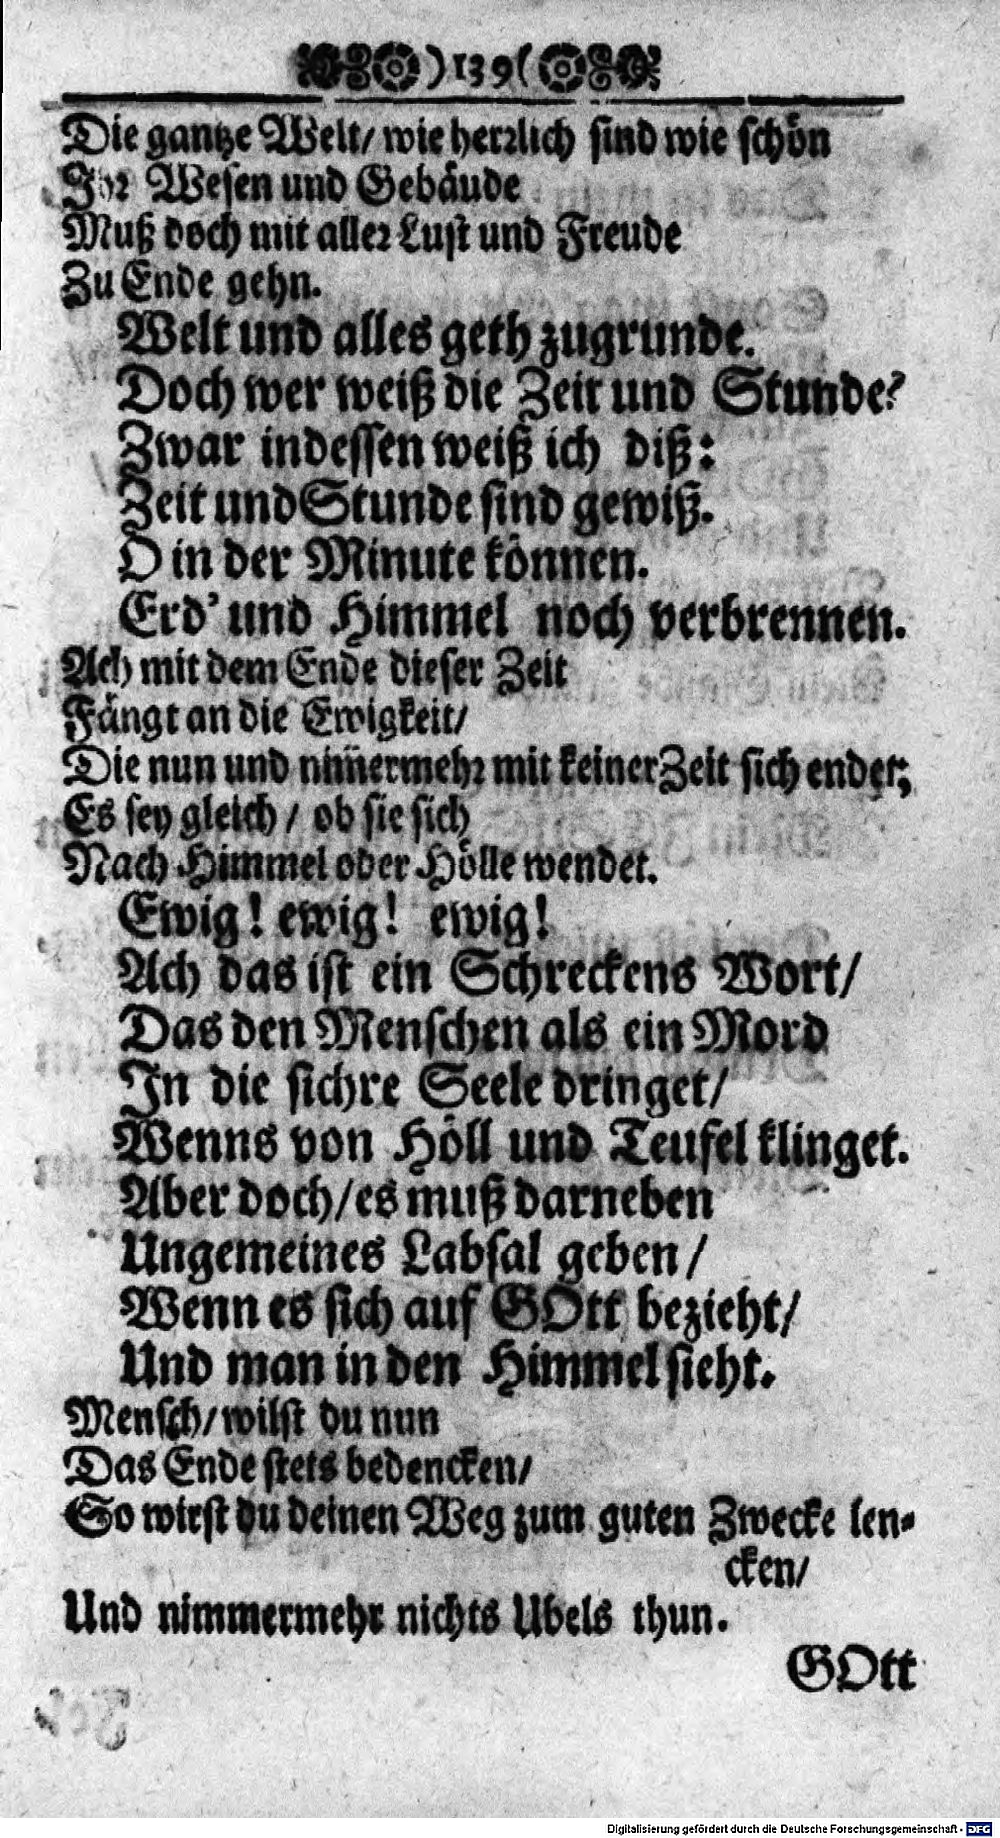 )139(
Die gantze Welt/ wie herrlich sind wie schön
Ihr Wesen und Gebäude
Muß doch mit aller Lust und Freude
Zu Ende gehn.
Welt und alles geth zugrunde.
Doch wer weiß die Zeit und Stunde?
Zwar indessen weiß ich diß:
Zeit und Stunde sind gewiß.
O in der Minute können.
Erd' und Himmel noch verbrennen.
Ach mit dem Ende dieser Zeit
Fängt an die Ewigkeit/
Die nun und nim̃ermehr mit keiner Zeit sich endet;
Es sey gleich/ ob sie sich
Nach Himmel oder Hölle wendet.
Ewig! ewig! ewig!
Ach das ist ein Schreckens Wort/
Das den Menschen als ein Mord
In die sichre Seele dringet/
Wenns von Höll und Teufel klinget.
Aber doch/ es muß darneben
Ungemeines Labsal geben/
Wenn es sich auf GOtt bezieht/
Und man in den Himmel sieht.
Mensch/ wilst du nun
Das Ende stets bedencken/
So wirst du deinen Weg zum guten Zwecke len-
cken/
Und nimmermehr nichts Ubels thun.
GOtt
Digitalisierung gefördert durch die Deutsche Forschungsgemeinschaft - DFG